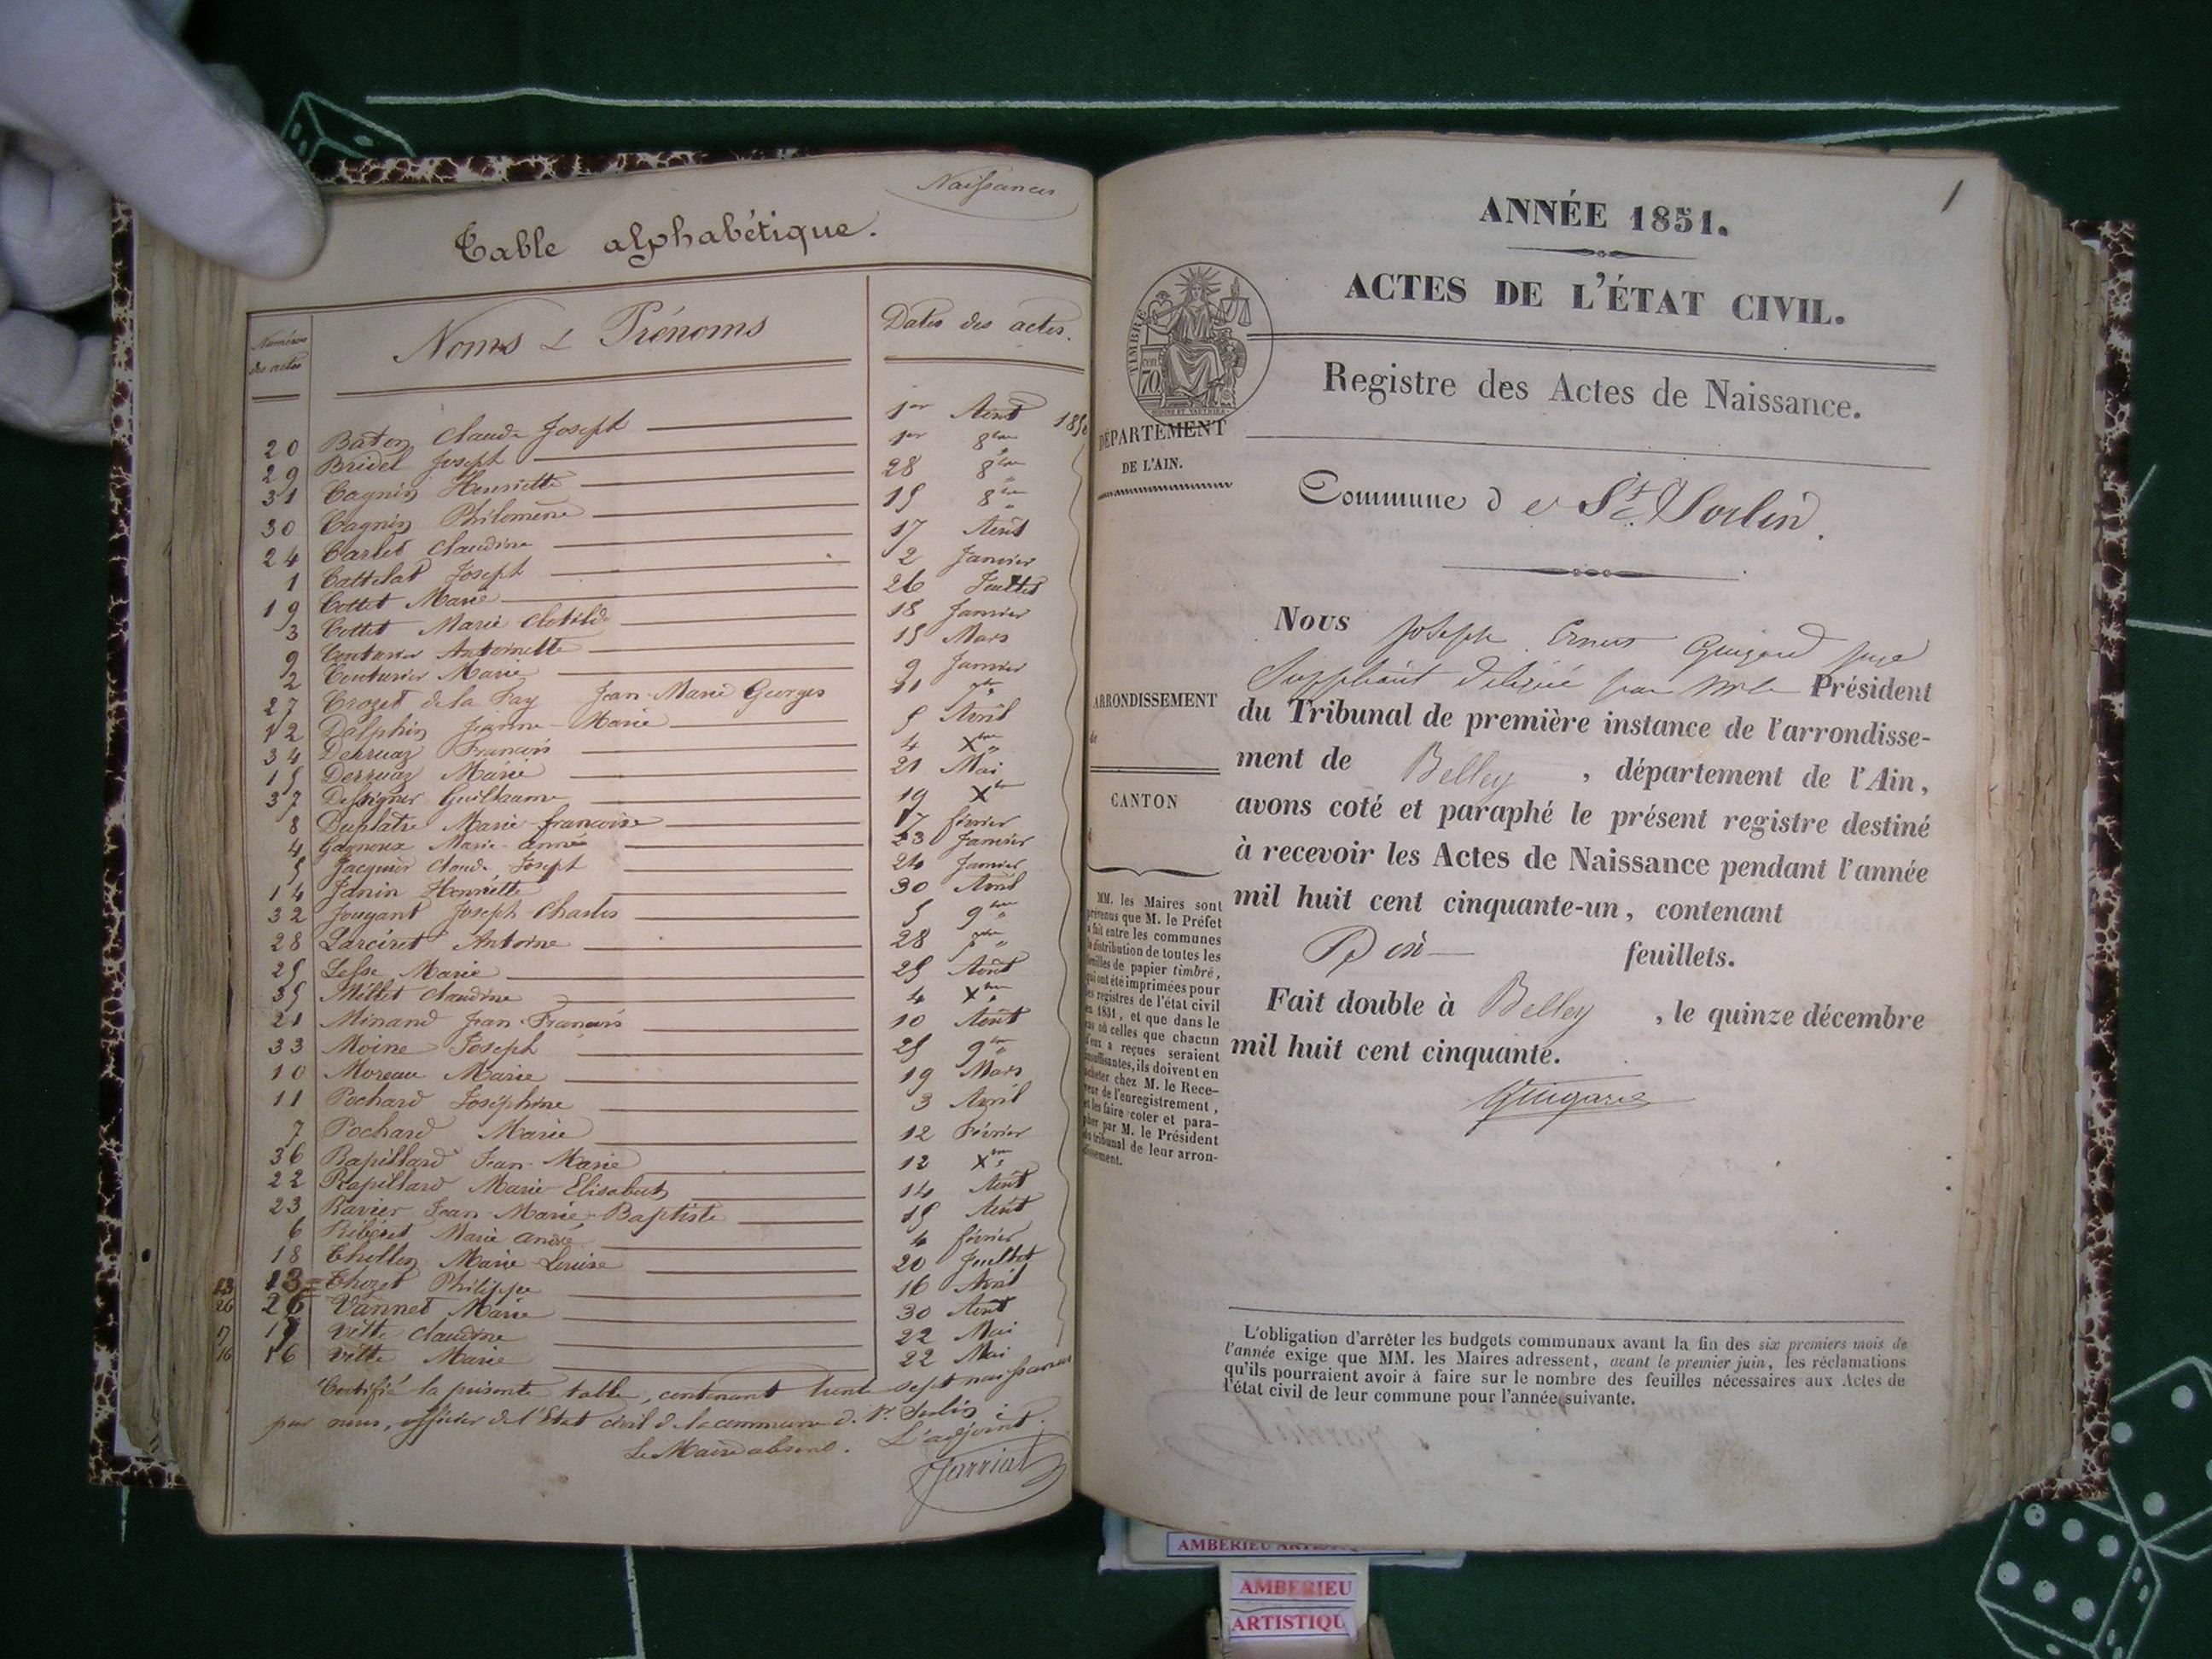 Naissances
Table alphabétique.
Numéros des actes
Noms & Prénoms
Dates des actes.
20 Baton Claude Joseph 1er Août 1850
29 Bridel Joseph 1er 8bre
31 Cagnin Henriette 28 8bre
30 Cagnin Philomène 15 8bre
24 Carlet Claudine 17 Août
1 Cattelat Joseph 2 Janvier
19 Cottet Marie 26 Juillet
3 Cottet Marie Clotilde 18 Janvier
9 Couturier Antoinette 15 Mars
2 Couturier Marie 9 Janvier
27 Crozet de la Fay Jean-Marie Georges 11 7bre
12 Dalphin Jeanne-Marie 5 Avril
34 Derruaz Francois 4 Xbre
15 Derruaz Marie 21 Mai
37 Guillaume 19 Xbre
8 Duplatre Marie-francoise 17 février
4 Gagneux Marie-anne 23 Janvier
5 Jacquier Claude Joseph 24 Janvier
14 Janin Henriette 30 Avril
32 Jougant Joseph-Charles 5 9bre
28 Larciret Antoine 28 7bre
25 Lesse Marie 25 Août
35 Millet Claudine 4 Xbre
21 Minand Jean-Francois 10 Août
33 Moine Joseph 25 9bre
10 Moreau Marie 19 Mars
11 Pochard Joséphine 3 Avril
7 Pochard Marie 12 Février
36 Rapillard Jean-Marie 12 Xbre
22 Rapillard Marie-Elisabeth 14 Août
23 Ravier Jean-Marie-Baptiste 15 Août
6 Marie 4 février
18 Thollon Marie-Louise 20 Juillet
13 13 Thozet Philippe 16 Avril
26 26 Vannet Marie 30 Août
17 17 Vitte Claudine 22 Mai
16 16 Vitte Marie 22 Mai
Certifié la présente table, contenant trente sept naissances
par nous, officier de l'Etat civil de la commune de St Sorlin :
Le Maire absent. L'adjoint.
Jarriat
1
ANNÉE 1851.
ACTES DE L'ÉTAT CIVIL.
TIMBRE
70 cen
Registre des Actes de Naissance.
DÉPARTEMENT
DE L'AIN.
Commune de St Sorlin.
Nous Joseph Ernest Guigard juge
Suppléant délégué par Mr le Président
du Tribunal de première instance de l'arrondisse-
ment de Belley, département de l'Ain,
avons coté et paraphé le présent registre destiné
à recevoir les Actes de Naissance pendant l'année
mil huit cent cinquante-un, contenant
feuillets.
Fait double à Belley, le quinze décembre
mil huit cent cinquante.
Guigard
ARRONDISSEMENT
de
CANTON
MM. les Maires sont
prévenus que M. le Préfet
a fait entre les communes
la distribution de toutes les
feuilles de papier timbré,
qui ont été imprimées pour
les registres de l'état civil
en 1851, et que dans le
cas où celles que chacun
d'eux a reçues seraient
insuffisantes, ils doivent en
acheter chez M. le Rece-
veur de l'enregistrement,
et les faire coter et para-
pher par M. le Président
du tribunal de leur arron-
dissement.
L'obligation d'arrêter les budgets communaux avant la fin des six premiers mois de
l'année exige que MM. les Maires adressent, avant le premier juin, les réclamations
qu'ils pourraient avoir à faire sur le nombre des feuilles nécessaires aux Actes de
l'état civil de leur commune pour l'année suivante.
AMBERIEU
AMBERIEU
ARTISTIQU